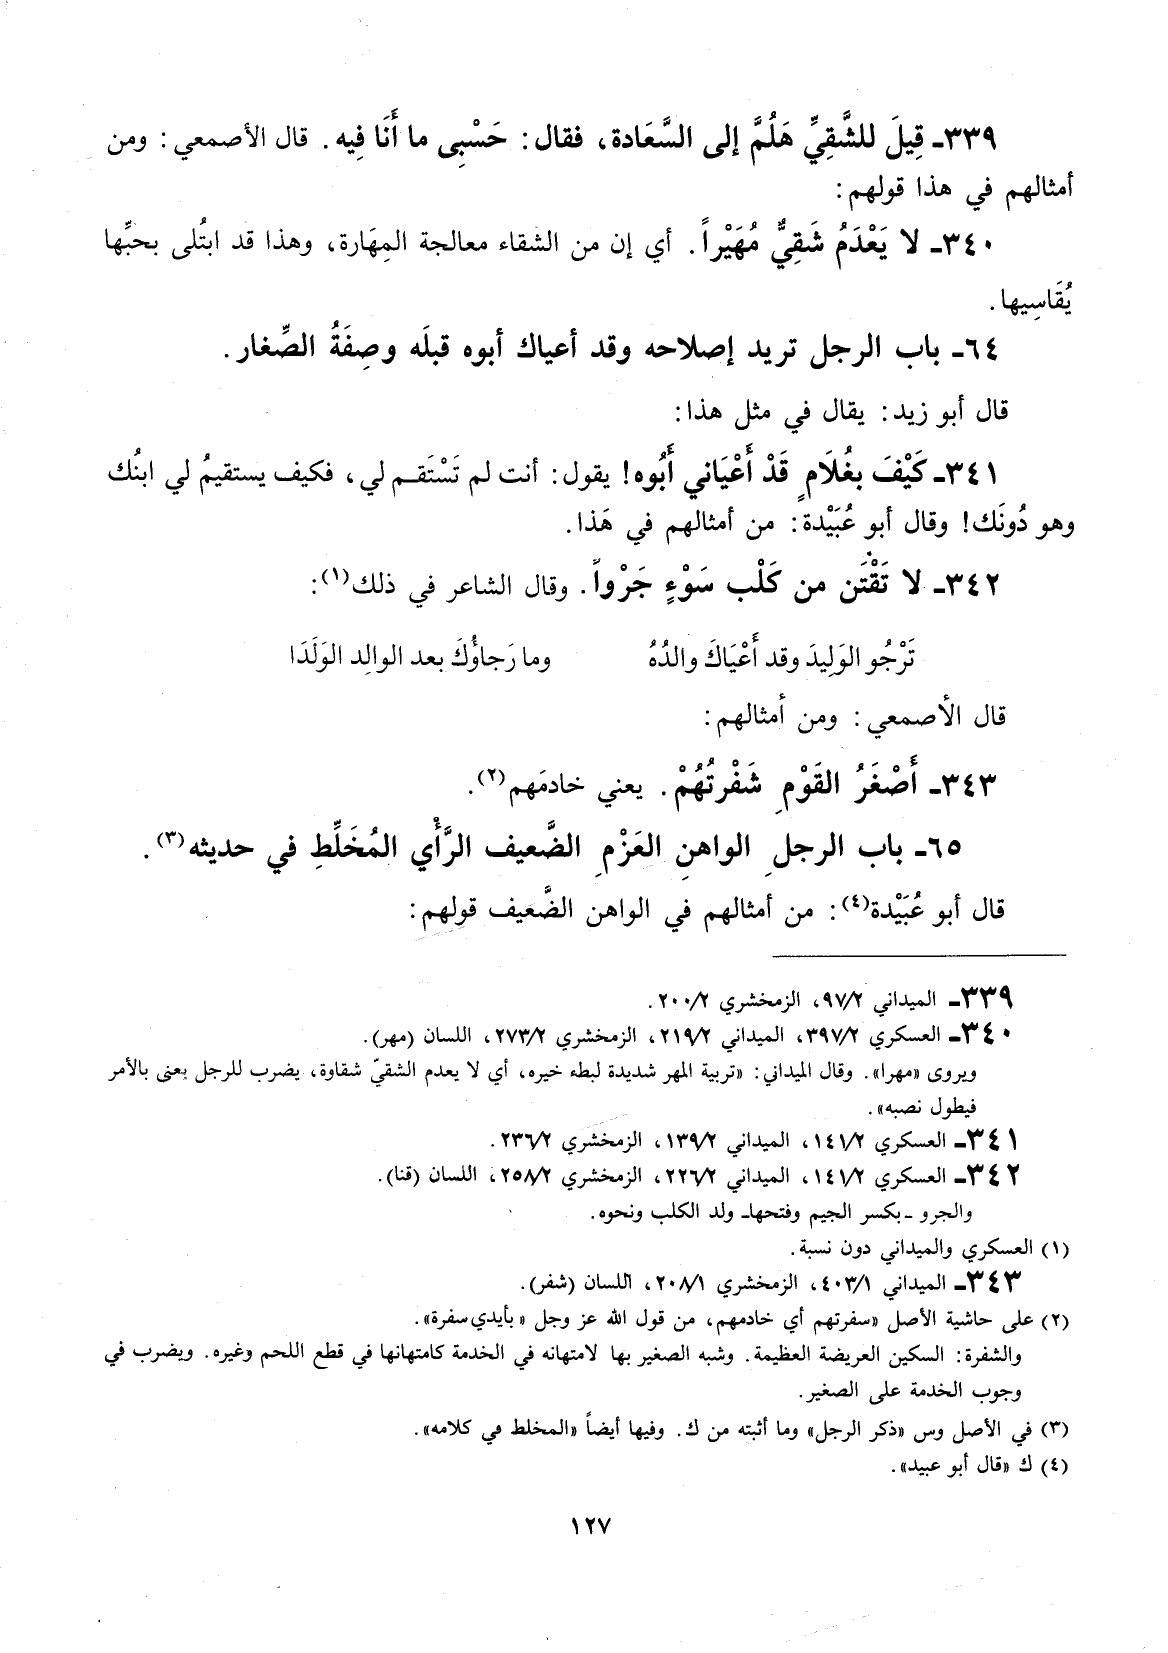 ٣٣٩ـ قِيلَ للشَّقِيِّ هَلُمَّ إلى السَّعَادة، فقال: حَسْبِى ما أَنَا فِيه. قال الأصمعي: ومن
أمثالهم في هذا قولهم:
٣٤٠ـ لا يَعْدَمُ شَقِيٌّ مُهَيْراً. أي إن من الشقاء معالجة المِهَارة، وهذا قد ابتُلى بحبِّها
يُقَاسِيها.
٦٤ـ باب الرجل تريد إصلاحه وقد أعياك أبوه قبلَه وصِفَةُ الصِّغار.
قال أبو زيد: يقال في مثل هذا:
٣٤١ـ كَيْفَ بغُلَامٍ قَدْ أَعْيَاني أَبُوه! يقول: أنت لم تَسْتَقم لي، فكيف يستقيمُ لي ابنُك
وهو دُونَك! وقال أبو عُبَيْدة: من أمثالهم في هَذا.
٣٤٢ـ لا تَقْتَن من كَلْب سَوْءٍ جَرْواً. وقال الشاعر في ذلك(١):
تَرْجُو الوَلِيدَ وقد أَعْيَاكَ والدُهُ وما رَجاؤُكَ بعد الوالِد الوَلَدَا
قال الأصمعي: ومن أمثالهم:
٣٤٣ـ أَصْغَرُ القَوْمِ شَفْرتُهُمْ. يعني خادمَهم(٢).
٦٥ـ باب الرجلِ الواهنِ العَزْمِ الضَّعيف الرَّأْي المُخَلِّطِ في حديثه(٣).
قال أبو عُبَيْدة(٤): من أمثالهم في الواهن الضَّعيف قولهم:
٣٣٩ـ الميداني ٩٧/٢، الزمخشري ٢٠٠/٢.
٣٤٠ـ العسكري ٣٩٧/٢، الميداني ٢١٩/٢، الزمخشري ٢٧٣/٢، اللسان (مهر).
ويروى «مهرا». وقال الميداني: «تربية المهر شديدة لبطء خيره، أي لا يعدم الشقيّ شقاوة، يضرب للرجل يعنى بالأمر
فيطول نصبه».
٣٤١ـ العسكري ١٤١/٢، الميداني ١٣٩/٢، الزمخشري ٢٣٦/٢.
٣٤٢ـ العسكري ١٤١/٢، الميداني ٢٢٦/٢، الزمخشري ٢٥٨/٢، اللسان (قنا).
والجرو ـبكسر الجيم وفتحهاـ ولد الكلب ونحوه.
(١) العسكري والميداني دون نسبة.
٣٤٣ـ الميداني ٤٠٣/١، الزمخشري ٢٠٨/١، اللسان (شفر).
(٢) على حاشية الأصل «سفرتهم أي خادمهم، من قول الله عز وجل «بأيدي سفرة».
والشفرة: السكين العريضة العظيمة. وشبه الصغير بها لامتهانه في الخدمة كامتهانها في قطع اللحم وغيره. ويضرب في
وجوب الخدمة على الصغير.
(٣) في الأصل وس «ذكر الرجل» وما أثبته من ك. وفيها أيضاً «المخلط في كلامه».
(٤) ك «قال أبو عبيد».
١٢٧